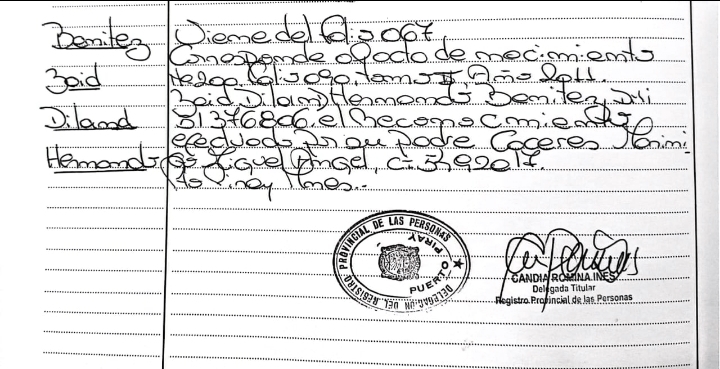 Benitez
Zaid
Diland
Hernando
Viene del folio 067
Corresponde al acta de nacimiento
folio 020, tomo II, Año 2011.
Zaid Diland Hernando Benitez, Dni
51376806. el Reconocimiento
efectuado por su padre Caceres
Miguel Angel,
DELEGACION DEL REGISTRO PROVINCIAL DE LAS PERSONAS
PUERTO PIRAY
CANDIA ROMINA INES
Delegada Titular
Registro Provincial de las Personas